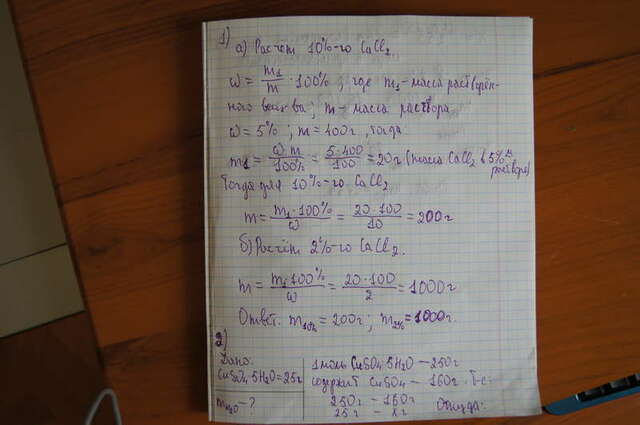 1)
а) Расчёт 10%-го CaCl2.
ω = m1/m · 100%, где m1 - масса растворён-
ного вещ-ва; m - масса раствора
ω = 5%; m = 400г, тогда
m1 = ω·m/100% = 5·400/100 = 20г (масса CaCl2 в 5%м растворе)
Тогда для 10%-го CaCl2
m = m1·100%/ω = 20·100/10 = 200г
б) Расчёт 2%-го CaCl2.
m = m1·100%/ω = 20·100/2 = 1000г
Ответ: m10% = 200г; m2% = 1000г.
2)
Дано:
CuSO4·5H2O = 25г
mH2O - ?
1 моль CuSO4·5H2O — 250г
содержит CuSO4 — 160г. Т.е.
250г — 160г
25г — xг Откуда: